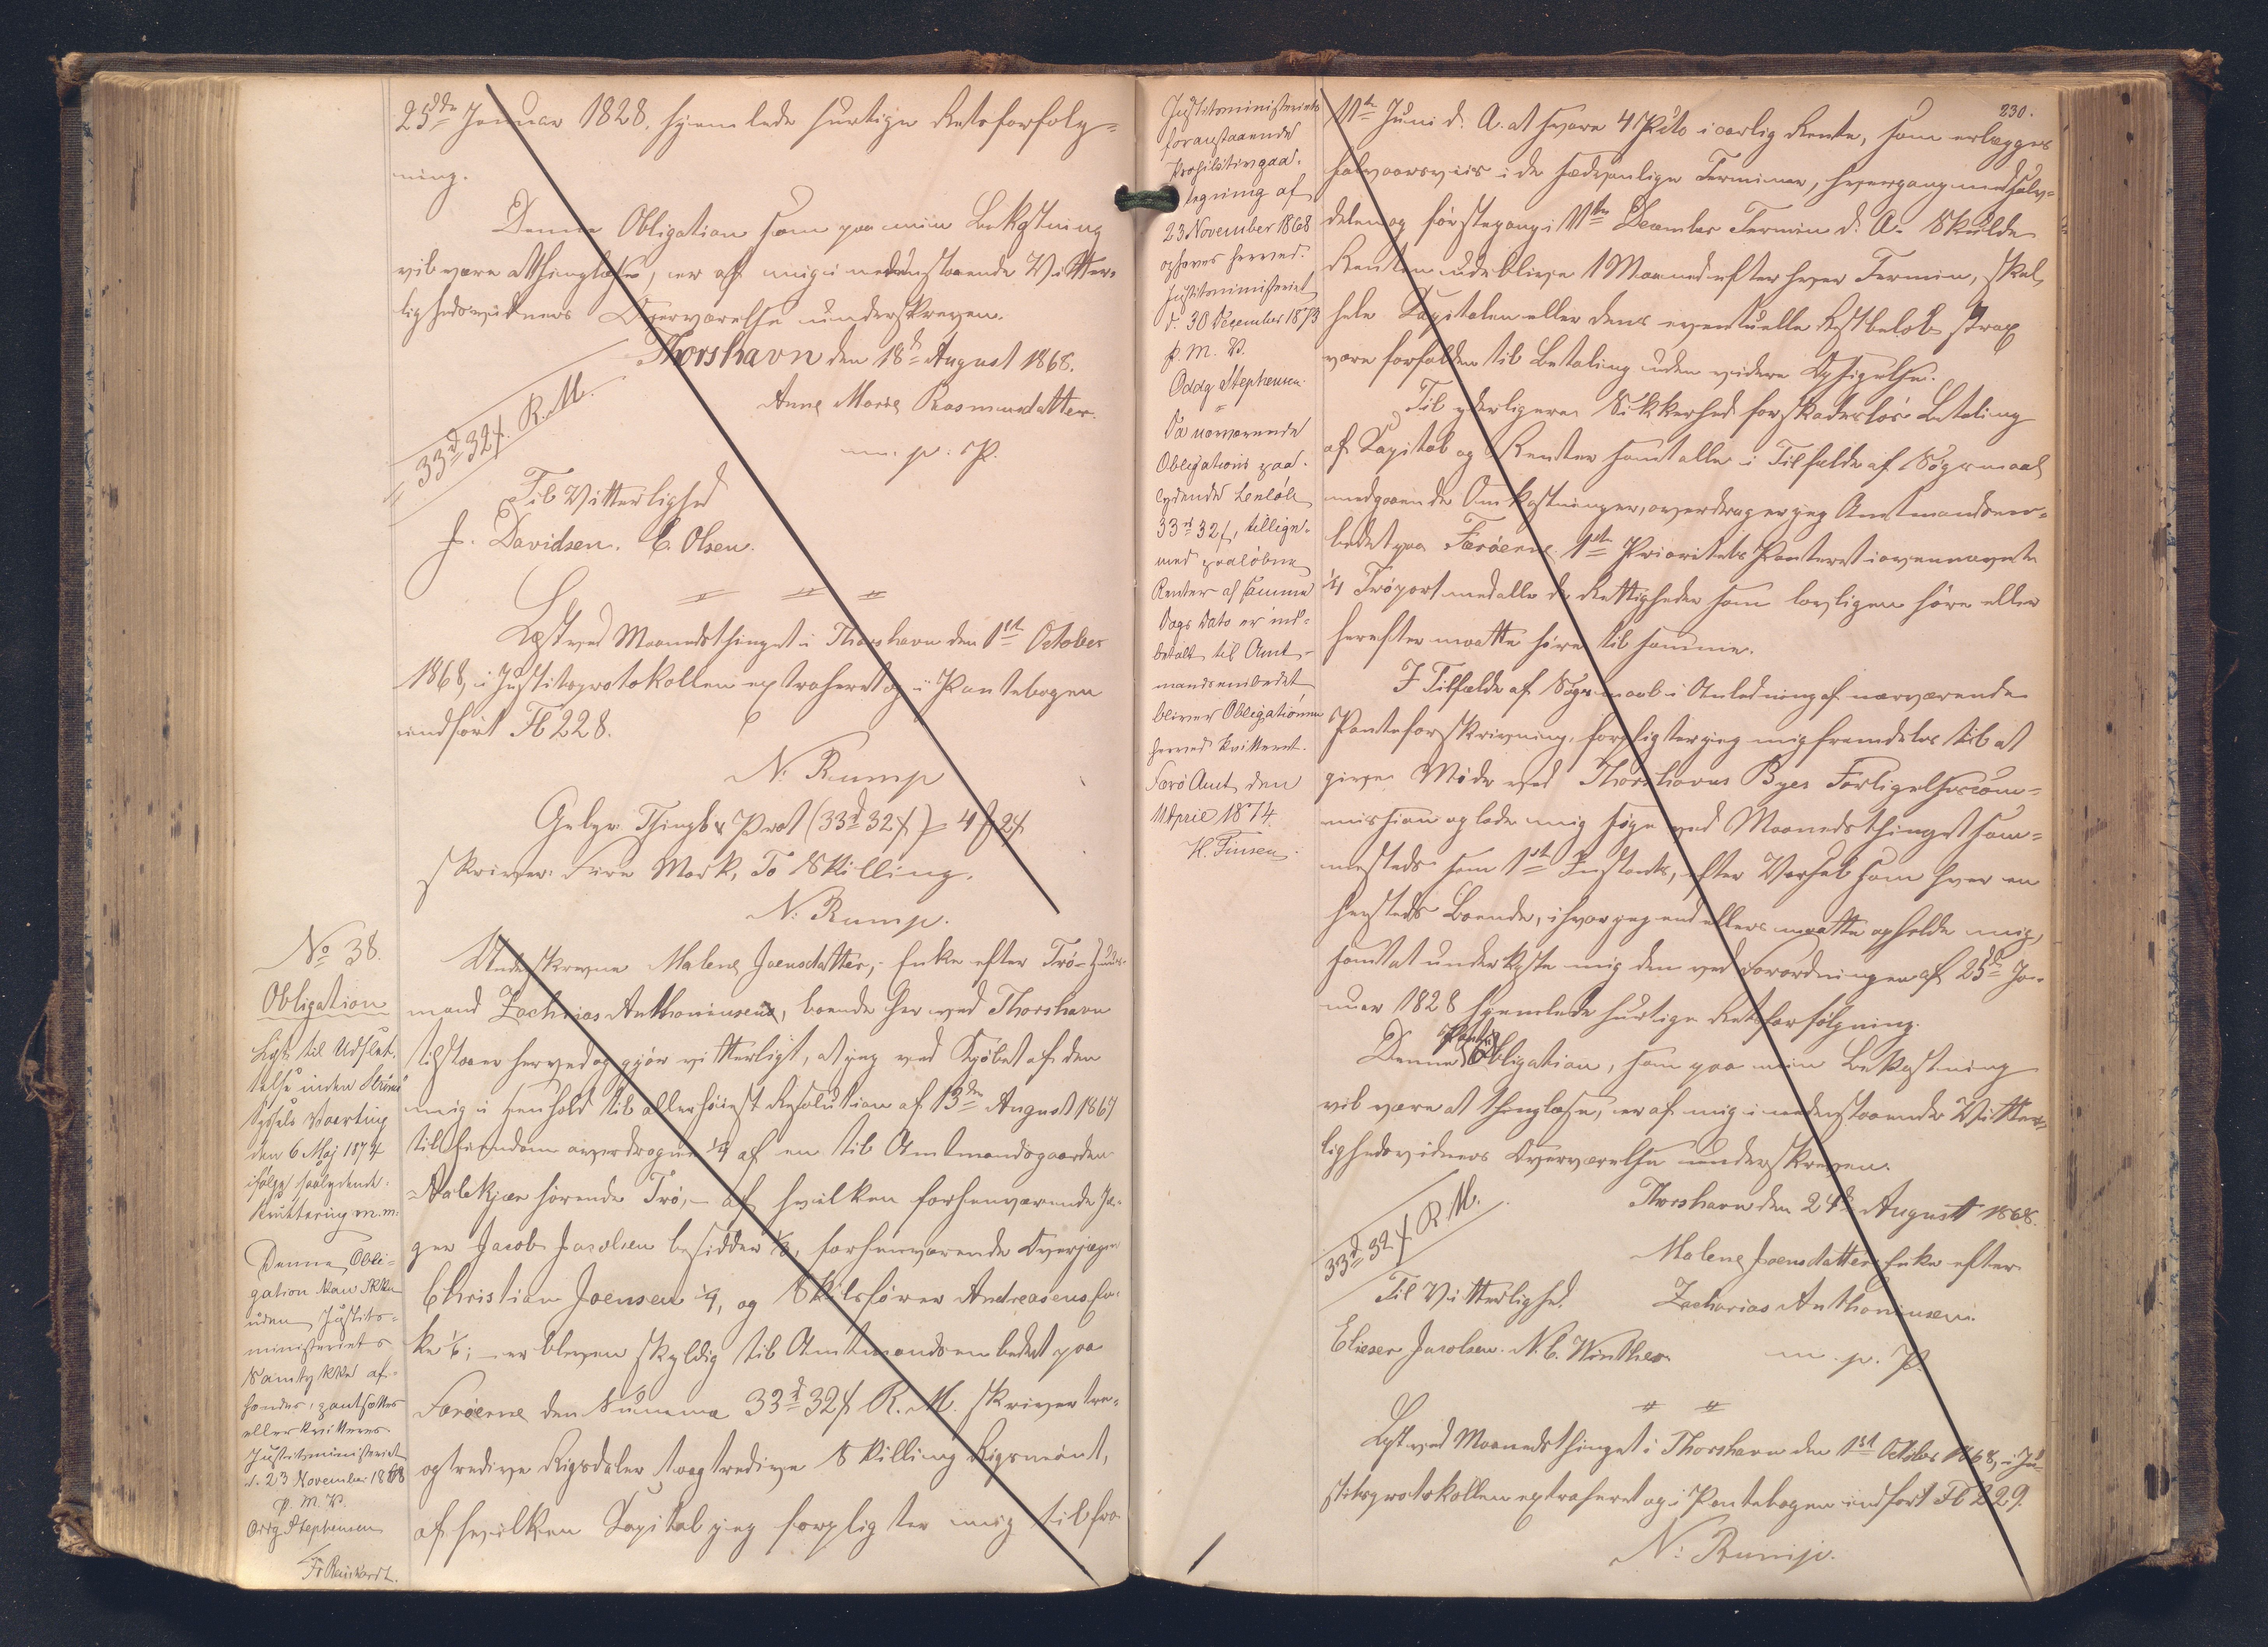 25de Januar 1828. hjemlede hurtige Retsforfølg=
ning.
Denne Obligation som paa min Bekostning
vil være at thinglæse, er af mig i nedenstaaende Vitter=
lighedsvidners Overværelse underskreven.
Thorshavn den 18de August 1868.
Anne Marie Rasmusdatter.
m. p. P.
33d 32ß R.M.
Til Vitterlighed
J. Davidsen. C. Olsen.
Læst ved Maanedsthinget i Thorshavn den 1ste October
1868, i Justitsprotokollen extraheret og i Pantebogen
indført Fl 228.
N. Rump
Gebyr Thingl & Prot (33d 32ß) = 4 2ß
skriver: Fire Mark, To Skilling.
N. Rump.
No 38.
Obligation
Lyst til Udslet=
telse inden Strömö
Syssels Vaarting
den 6 Maj 1874
ifølge saalydende
Kvittering m.m:
Denne Obli=
gation kan ikke
uden Justits=
ministeriets
Samtykke af=
hændes, pantsættes
eller kvitteres
Justitsministeriet
d. 23 November 1868
P. M. V.
Oddg Stephensen
Fr Reinhardt.
Underskrevne Malene Joensdatter, Enke efter Trö=Huus=
mand Zacharias Anthoniusens, boende her ved Thorshavn
tilstaaer herved og gjør vitterligt, at jeg ved Kjöbet af den
mig i Henhold til allerhöiest Resolution af 13de August 1867
til Eiendom overdragne 1/4 af en til Amtmandsgaarden
Aalekjær hörende Trö, - af hvilken forhenværende Jæ=
ger Jacob Jacobsen besidder 1/3, forhenværende Overjæger
Christian Joensen 1/4, og Skilsförer Andreasens En=
ke 1/6; - er bleven skyldig til Amtmandsembedet paa
Færöerne den Summa 33d 32ß R. M. skriver tre=
og tredive Rigsdaler to og tredive Skilling Rigsmönt,
af hvilken Kapital jeg forpligter mig til fra
230.
Justitsministeriets
foranstaaende
Prohibitivpaa=
tegning af
23 November 1868
ophæves herved.
Justitsministeriet
d. 30 December 1873
P. M. V.
Oddg Stephensen
Da nærværende
Obligations paa=
lydende Beløb
33rd 32ß, tillige=
med paaløbne
Renter af samme
Dags Dato er ind=
betalt til Amt=
mandsembedet
bliver Obligationen
herved kvitteret.
Færö Amt den
1 April 1874.
H. Finsen.
11te Juni d. A. at svare 4 Pcto i aarlig Rente, som erlægges
halvaarsviis i de sædvanlige Terminer, hvergang med Halv=
delen og förstegang i 11te December Termin d. A. Skulde
Renten udeblive 1 Maaned efter hver Termin, skal
hele Kapitalen eller dens eventuelle Restbeløb strax
være forfalden til Betaling uden videre Opsigelse.
Til yderligere Sikkerhed for skadeslös Betaling
af Kapital og Renter samt alle i Tilfælde af Sögsmaal
medgaaende Omkostninger, overdrager jeg Amtmandsem=
bedet paa Færöerne 1ste Prioritets Panteret i ovennævnte
1/4 Tröpart med alle de Rettigheder som lovligen höre eller
herefter maatte höre til samme.
I Tilfælde af Sögsmaal i Anledning af nærværende
Panteforskrivning, forpligter jeg mig fremdeles til at
give Möde ved Thorshavns Byes Forligelsescom=
mission og lade mig søge ved Maanedsthinget sam=
mesteds som 1ste Instants, efter Varsel som hver en
hersteds Boende, ihvor jeg end ellers maatte opholde mig,
samt at underkaste mig den ved Forordningen af 25de Ja=
nuar 1828 hjemlede hurtige Retsforfölgning.
Denne Pante Obligation, som paa min Bekostning
vil være at thinglæse, er af mig i nedenstaaende Vitter=
lighedsvidners Overværelse underskreven.
Thorshavn den 24de August 1868.
33d 32ß R.M.
Malene Joensdatter Enke efter
Til Vitterlighed.
Zacharias Anthoniusen.
Elieser Jacobsen. N. C. Winther
m. p. P.
Lyst ved Maanedsthinget i Thorshavn den 1ste October 1868, i Ju=
stitsprotokollen extraheret og i Pantebogen indfört Fl 229.
N. Rump.